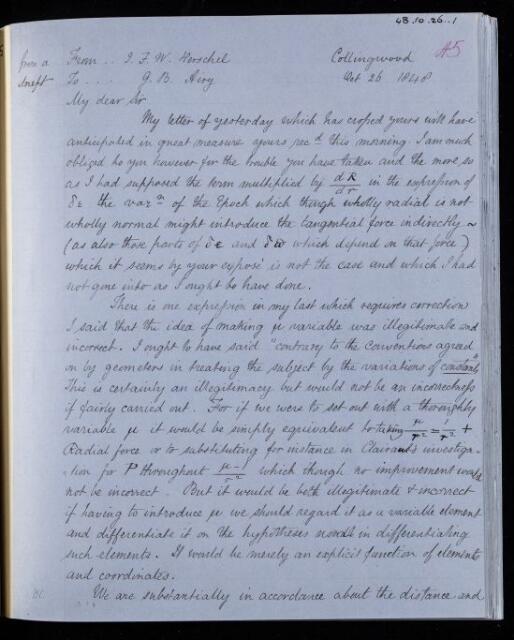 48.10.26..1
45
from a draft
From .. J. F. W. Herschel Collingwood
To .... G. B. Airy Oct 26 1848
My dear Sir
My letter of yesterday which has crossed yours will have
anticipated in great measure yours rec^d this morning. I am much
obliged to you however for the trouble you have taken and the more so
as I had supposed the term multiplied by dR/dr in the expression of
δε the var^n of the Epoch which though wholly radial is not
wholly normal might introduce the tangential force indirectly ~
(as also those parts of δe and δω which depend on that force)
which it seems by your exposé is not the case and which I had
not gone into as I ought to have done.
There is one expression in my last which requires correction
I said that the idea of making μ variable was illegitimate and
incorrect. I ought to have said "contrary to the conventions agreed
on by geometers in treating the subject by the variations of constants"
This is certainly an illegitimacy but would not be an incorrectness
if fairly carried out. For if we were to set out with a thoroughly
variable μ it would be simply equivalent to taking μ/r² = 1/r² +
Radial force or to substituting for instance in Clairaut's investiga-
-tion for P throughout μ-1/r² which though no improvement would
not be incorrect. But it would be both illegitimate & incorrect
if having to introduce μ we should regard it as a variable element
and differentiate it on the hypotheses used in differentiating
such elements. It would be merely an explicit function of elements
and coordinates.
We are substantially in accordance about the distance and